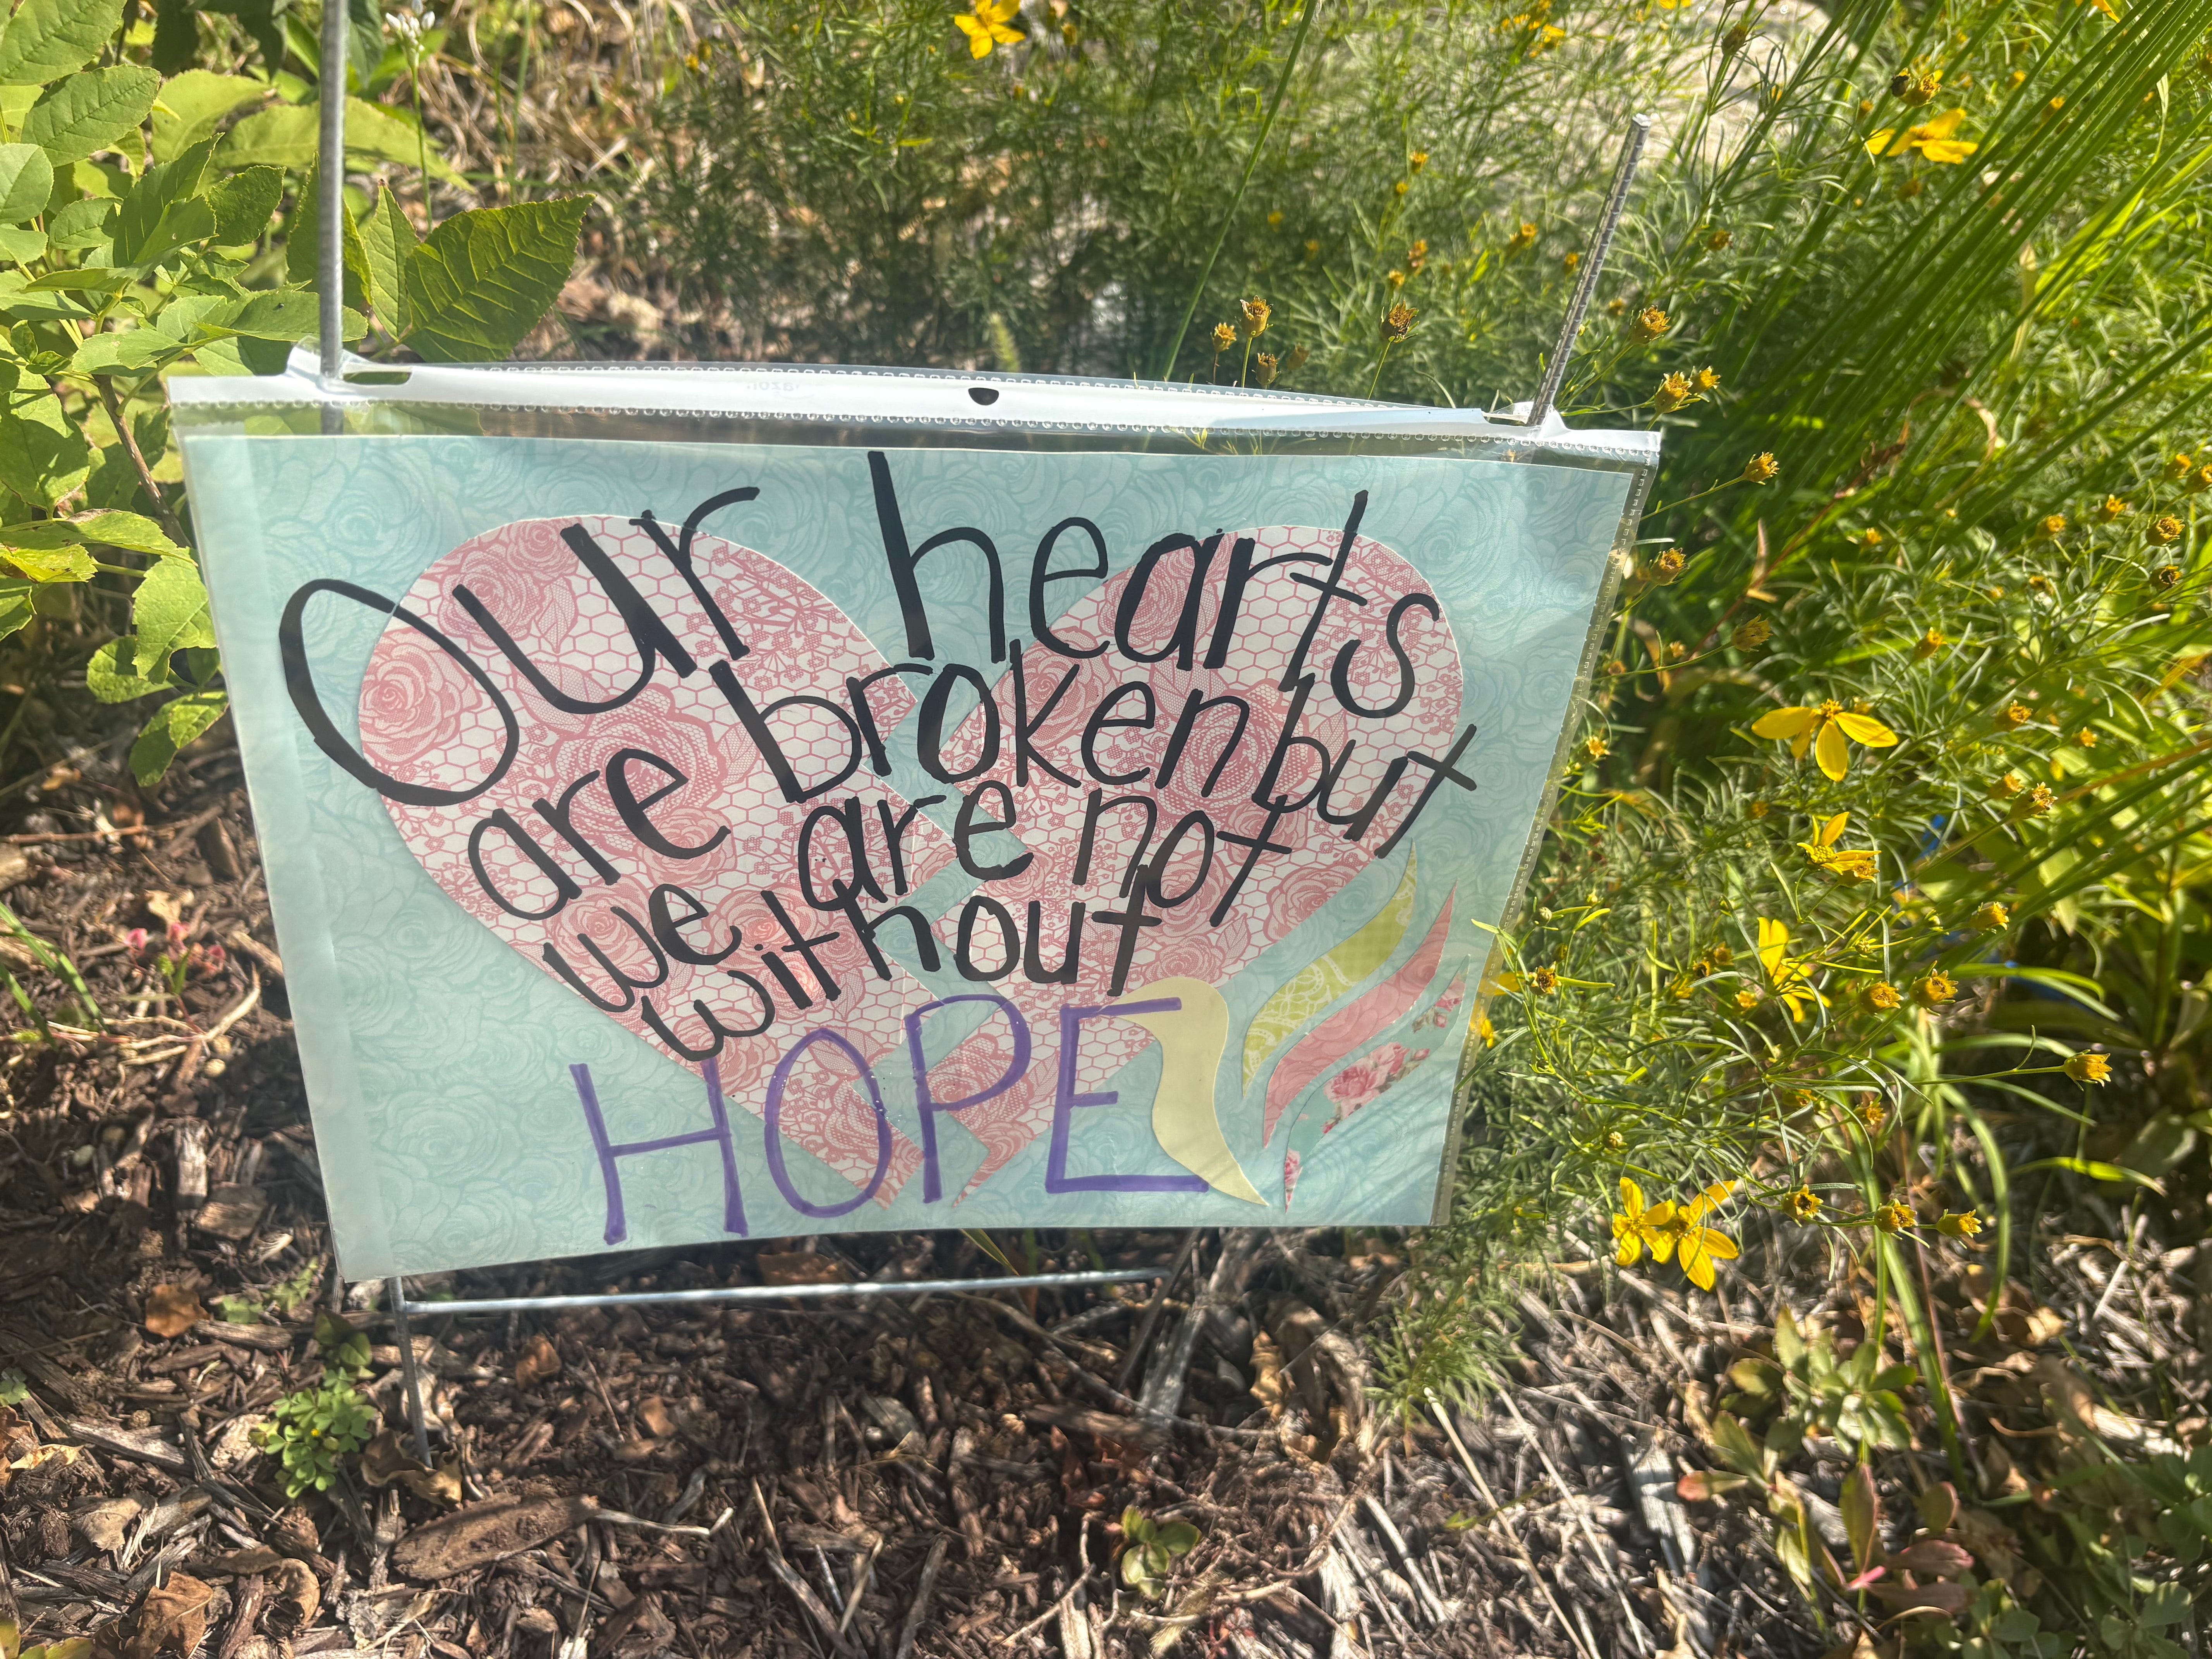 Our hearts
are broken but
we are not
without
HOPE